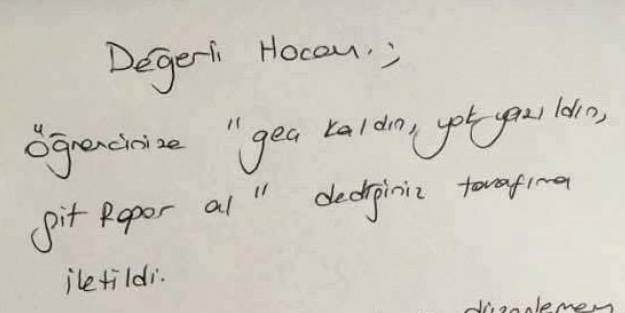 Değerli Hocam;
Öğrencinize "geç kaldın, yok yazıldın,
git Rapor al" dediğiniz tarafıma
iletildi.
düzenlemey